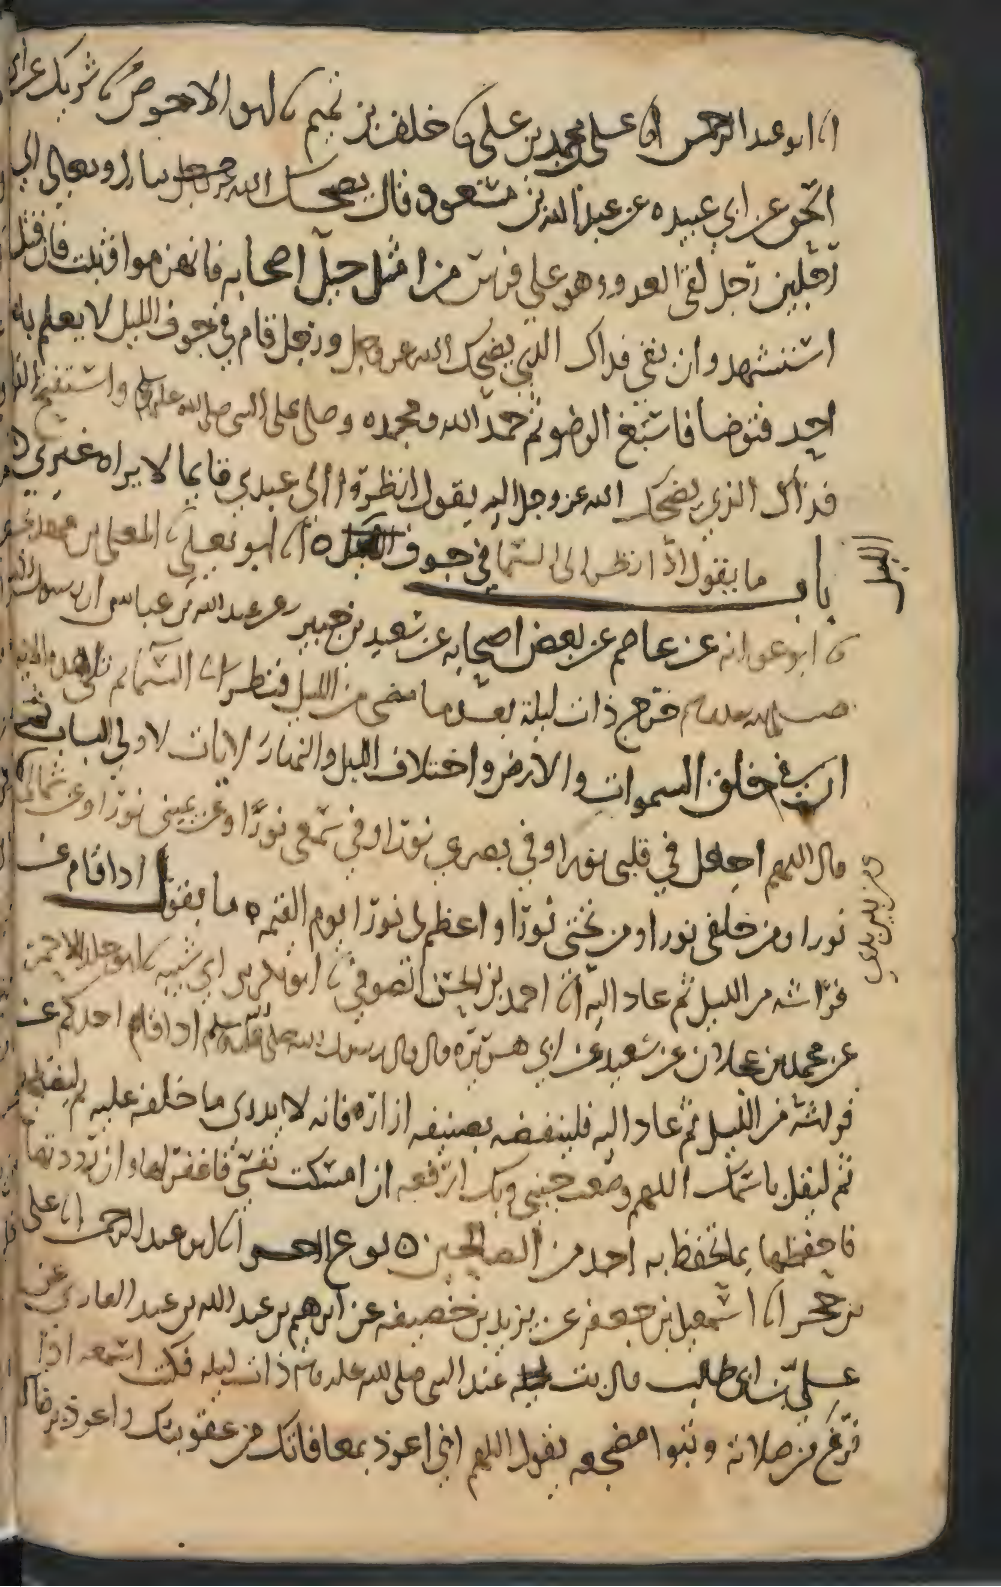 انا ابو عبد الرحمن انا علي محمد بن علي نا خلف بن تميم نا ابو الاحوص نا شريك عن ابي
اسحق عن ابي عبيده عن عبد الله بن مسعود قال يضحك الله عز وجل تبارك وتعالى الى
رجلين رجل لقي العدو وهو على فرس من امثل خيل اصحابه فانهزموا فثبت فان قتل
استشهد وان بقي فذاك الذي يضحك الله عز وجل ورجل قام في جوف الليل لا يعلم به
احد فتوضا فاسبغ الوضو ثم حمد الله ومجده وصلى على النبي صلى الله عليه وسلم واستفتح القران
فذاك الذي يضحك الله عز وجل اليه يقول انظروا الى عبدي قايما لا يراه غيري
باب ما يقول اذا نظر الى السما في جوف الليل انا ابو يعلى نا المعلى بن مهدي
الليل
نا ابو عوانه عن عاصم عن بعض اصحابه عن سعيد بن جبير عن عبد الله بن عباس ان رسول الله
صلى الله عليه وسلم خرج ذات ليلة بعد ما مضى من الليل فنظر الى السما ثم تلا هذه الايه
ان في خلق السموات والارض واختلاف الليل والنهار لايات لاولي الباب ثم
قال اللهم اجعل في قلبي نورا وفي بصري نورا وفي سمعي نورا وعن يميني نورا وعن شمالي
نورا ومن خلفي نورا ومن تحتي نورا واعظم لي نورا يوم القيمه ما يقول اذا قام عن
ومن بين يدي
فراشه من الليل ثم عاد اليه انا احمد بن الحسن الصوفي نا ابو بكر بن ابي شيبه نا ابو خالد الاحمر
عن محمد بن عجلان عن سعيد عن ابي هريره قال قال رسول الله صلى الله عليه وسلم اذا قام احدكم عن
فراشه من الليل ثم عاد اليه فلينفضه بصنيفه ازاره فانه لا يدري ما خلفه عليه
ثم ليقل باسمك اللهم وضعت جنبي وبك ارفعه ان امسكت نفسي فاغفر لها وان رددتها
فاحفظها بما تحفظ به احد من الصالحين نوع اخر انا ابو عبد الرحمن انا علي
بن حجر انا اسمعيل بن جعفر عن يزيد بن خصيفه عن ابرهيم بن عبد الله بن عبد القاري عن
علي بن ابي طالب قال بت عند النبي صلى الله عليه وسلم ذات ليله فكنت اسمعه اذا
فرغ من صلاته وتبوا مضجعه يقول اللهم اني اعوذ بمعافاتك من عقوبتك واعوذ برضاك